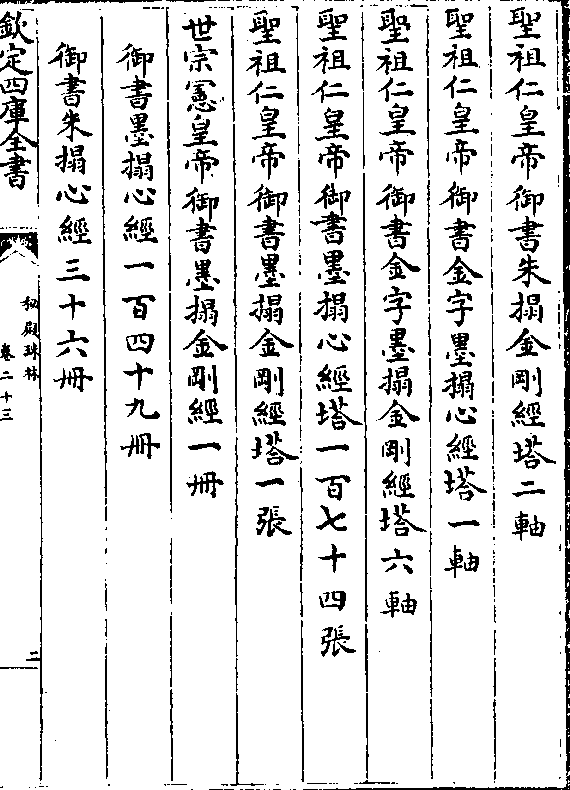 聖祖仁皇帝御書朱搨金剛經塔二軸
聖祖仁皇帝御書金字墨搨心經塔一軸
聖祖仁皇帝御書金字墨搨金剛經塔六軸
聖祖仁皇帝御書墨搨心經塔一百七十四張
聖祖仁皇帝御書墨搨金剛經塔一張
世宗憲皇帝御書墨搨金剛經一冊
御書墨搨心經一百四十九冊
御書朱搨心經三十六冊
欽定四庫全書
秘殿珠林
卷二十三
二